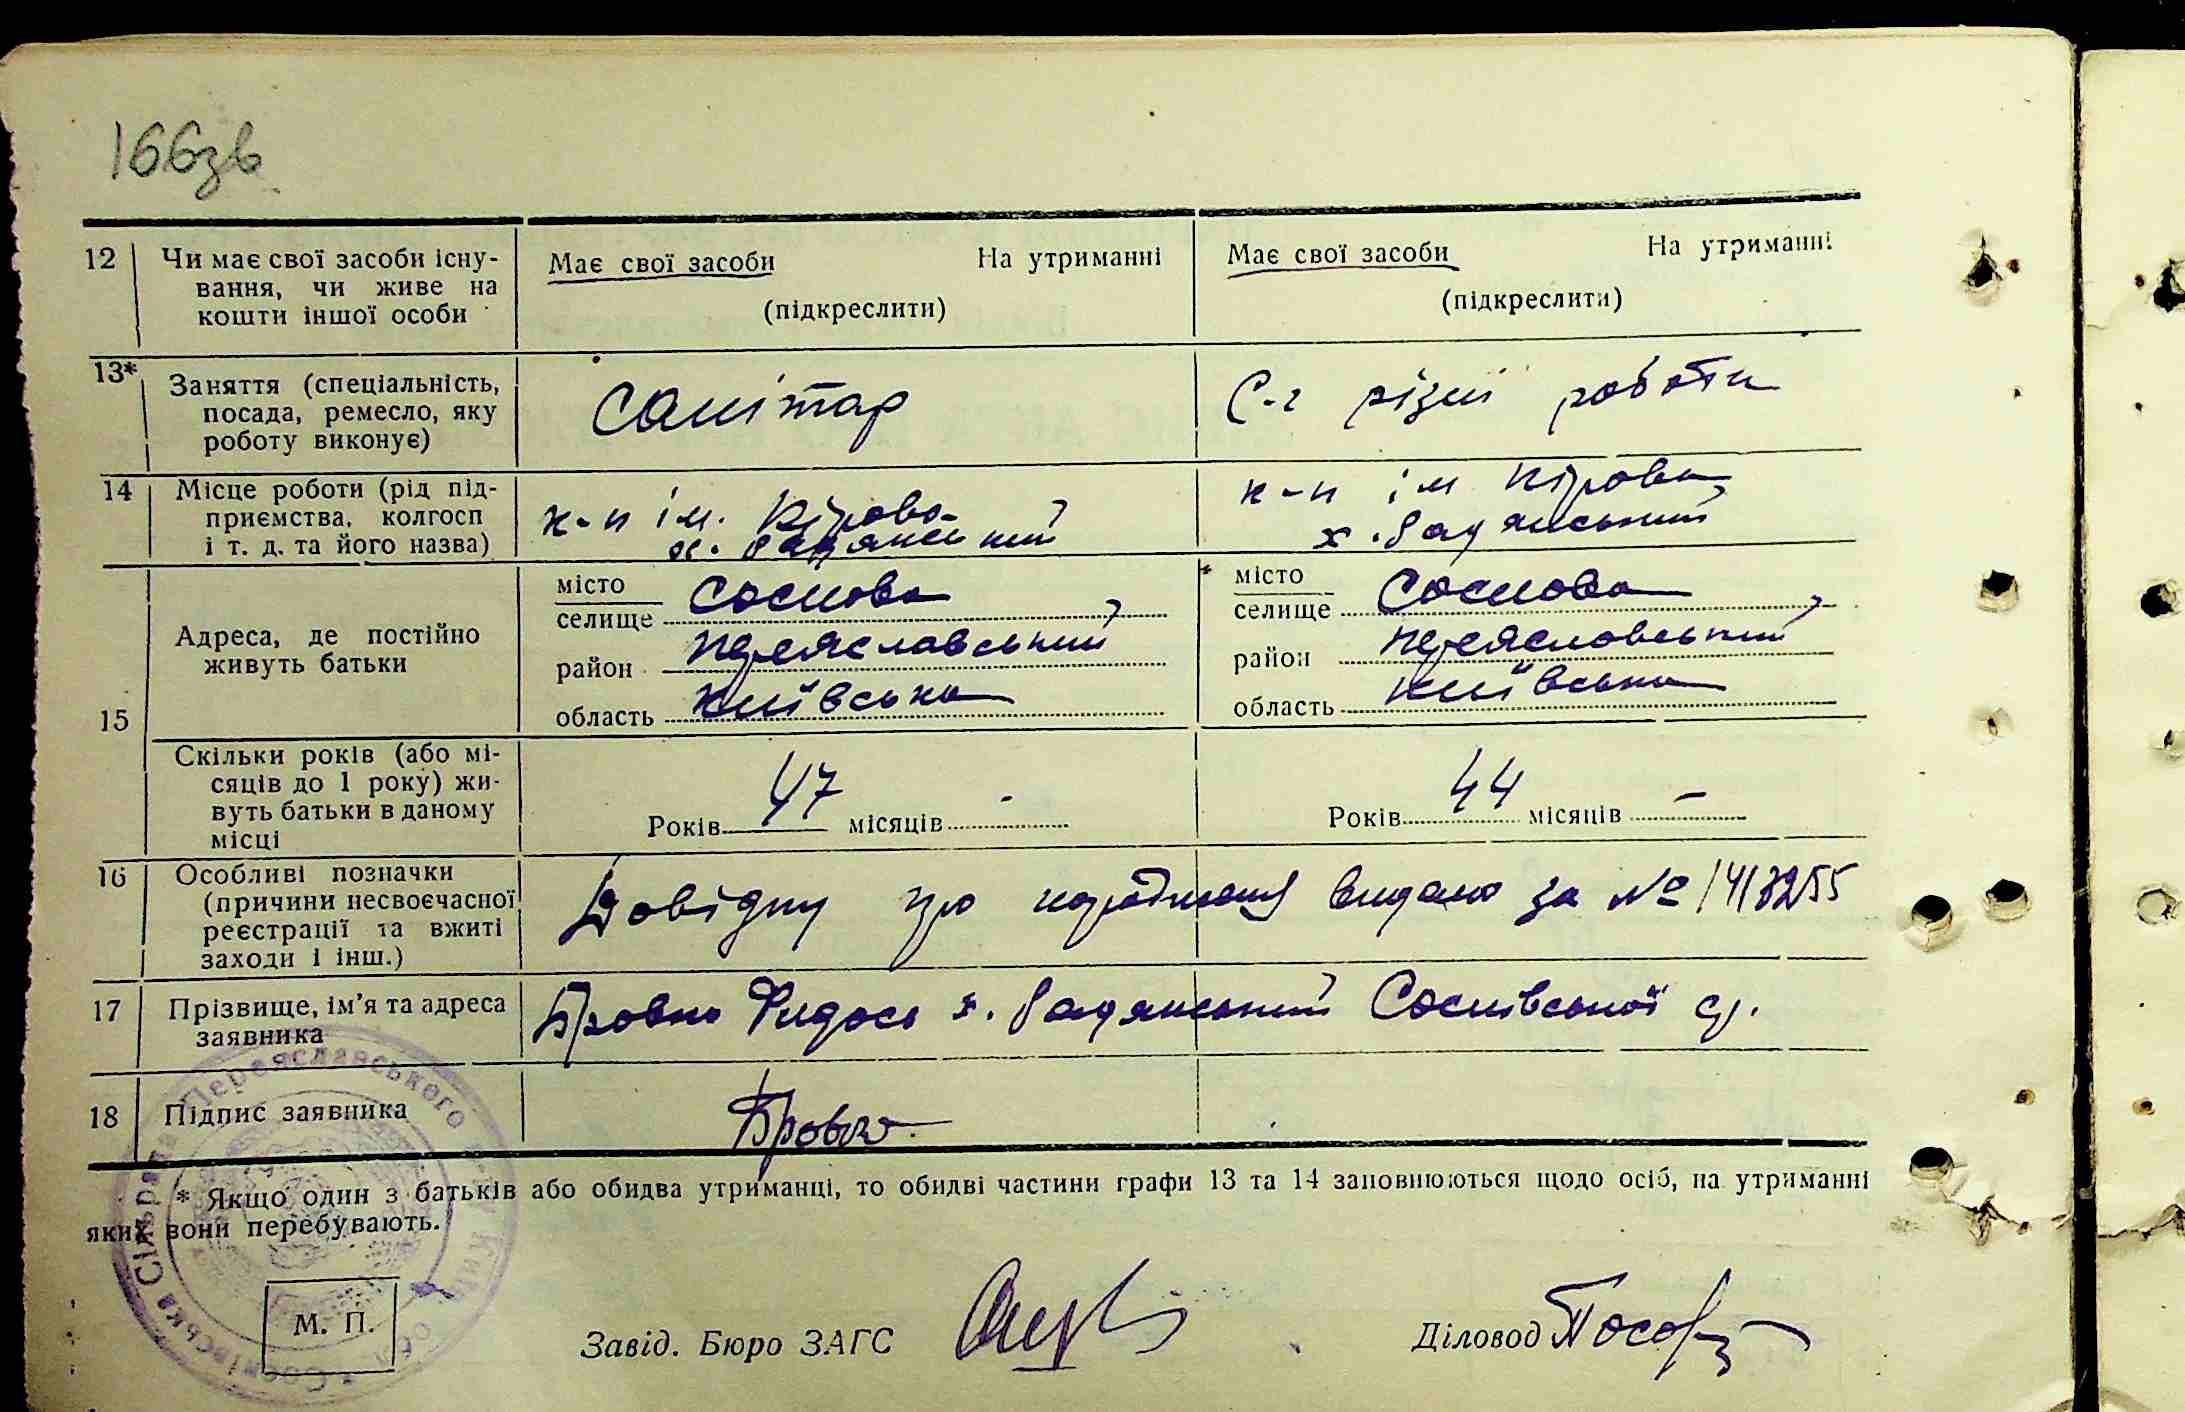 166зв
12 Чи має свої засоби існу-
вання, чи живе на
кошти іншої особи
Має свої засоби На утриманні
(підкреслити)
Має свої засоби На утриманні
(підкреслити)
13* Заняття (спеціальність,
посада, ремесло, яку
роботу виконує)
Санітар
С-г різні роботи
14 Місце роботи (рід під-
приємства, колгосп
і т. д. та його назва)
к-п ім. Кірова
х. Радянський
к-п ім Кірова
х. Радянський
15 Адреса, де постійно
живуть батьки
місто
селище Соснова
район Переяславський
область Київська
місто
селище Соснова
район Переясловський
область Київська
Скільки років (або мі-
сяців до 1 року) жи-
вуть батьки в даному
місці
Років 47 місяців -
Років 44 місяців -
16 Особливі позначки
(причини несвоєчасної
реєстрації та вжиті
заходи і інш.)
Довідку про народження видано за № 1413255
17 Прізвище, ім'я та адреса
заявника
Бровко Федось х. Радянський Соснівської с/р.
18 Підпис заявника
Бровко
* Якщо один з батьків або обидва утриманці, то обидві частини графи 13 та 14 заповнюються щодо осіб, на утриманні
яких вони перебувають.
Соснівська Сільрада Переяславського р-ну Київ. обл.
М. П.
Завід. Бюро ЗАГС
Діловод